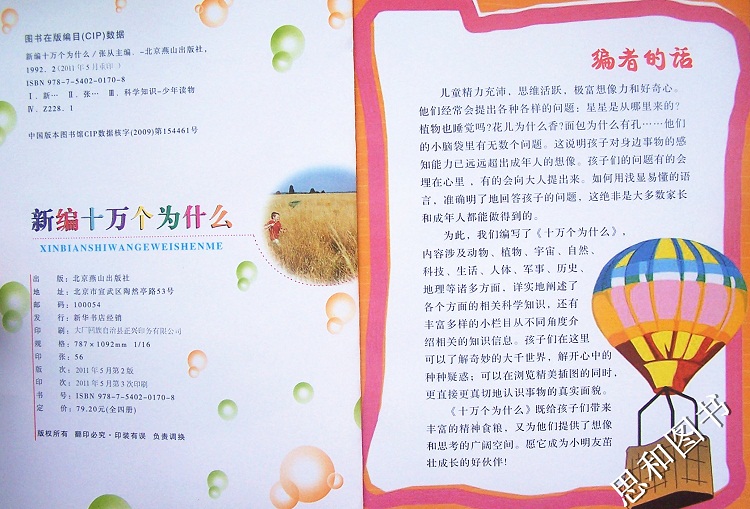 图书在版编目(CIP)数据
新编十万个为什么/张从主编.-北京燕山出版社,
1992.2(2011年5月重印)
ISBN 978-7-5402-0170-8
Ⅰ.新… Ⅱ.张… Ⅲ.科学知识-少年读物
Ⅳ.Z228.1
中国版本图书馆CIP数据核字(2009)第154461号
新编十万个为什么
XINBIANSHIWANGEWEISHENME
出 版:北京燕山出版社
地 址:北京市宣武区陶然亭路53号
邮 码:100054
发 行:新华书店经销
印 刷:大厂回族自治县正兴印务有限公司
规 格:787×1092mm 1/16
印 张:56
版 次:2011年5月第2版
印 次:2011年5月第3次印刷
书 号:ISBN 978-7-5402-0170-8
定 价:79.20元(全四册)
版权所有 翻印必究·印装有误 负责调换
编者的话
儿童精力充沛,思维活跃,极富想像力和好奇心。
他们经常会提出各种各样的问题:星星是从哪里来的?
植物也睡觉吗?花儿为什么香?面包为什么有孔……他们
的小脑袋里有无数个问题。这说明孩子对身边事物的感
知能力已远远超出成年人的想像。孩子们的问题有的会
埋在心里,有的会向大人提出来。如何用浅显易懂的语
言,准确明了地回答孩子的问题,这绝非是大多数家长
和成年人都能做得到的。
为此,我们编写了《十万个为什么》,
内容涉及动物、植物、宇宙、自然、
科技、生活、人体、军事、历史、
地理等诸多方面,详实地阐述了
各个方面的相关科学知识,还有
丰富多样的小栏目从不同角度介
绍相关的知识信息。孩子们在这里
可以了解奇妙的大千世界,解开心中的
种种疑惑;可以在浏览精美插图的同时,
更直接更真切地认识事物的真实面貌。
《十万个为什么》既给孩子们带来
丰富的精神食粮,又为他们提供了想像
和思考的广阔空间。愿它成为小朋友茁
壮成长的好伙伴!
思和图书